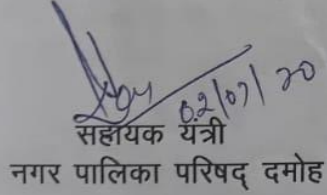 02/07/20
सहायक यंत्री
नगर पालिका परिषद् दमोह